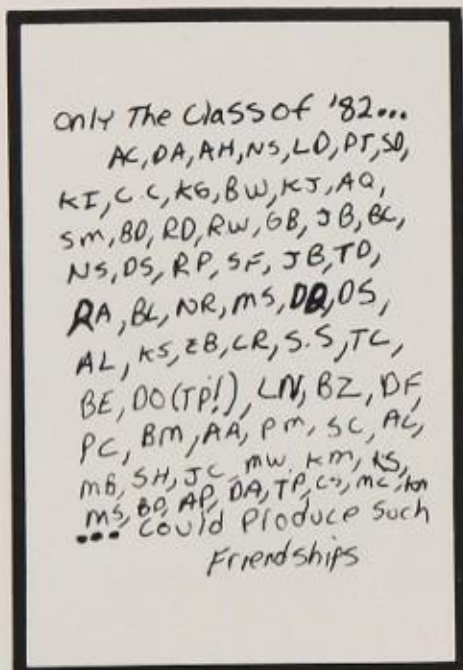 Only The Class of '82...
AC, DA, AH, NS, LD, PT, SD,
KI, C.C, KG, BW, KJ, AQ,
SM, BD, RD, RW, GB, JB, BC,
NS, DS, RP, SF, JB, TD,
RA, BC, NR, MS, DS,
AL, KS, EB, CR, S.S, TC,
BE, DO (TP!), LN, BZ, DF,
PC, BM, AA, PM, SC, AC,
MB, SH, JC, MW, KM, KS,
MS, BD, AP, DA, TP, CS, MC, KM
... Could Produce Such
Friendships